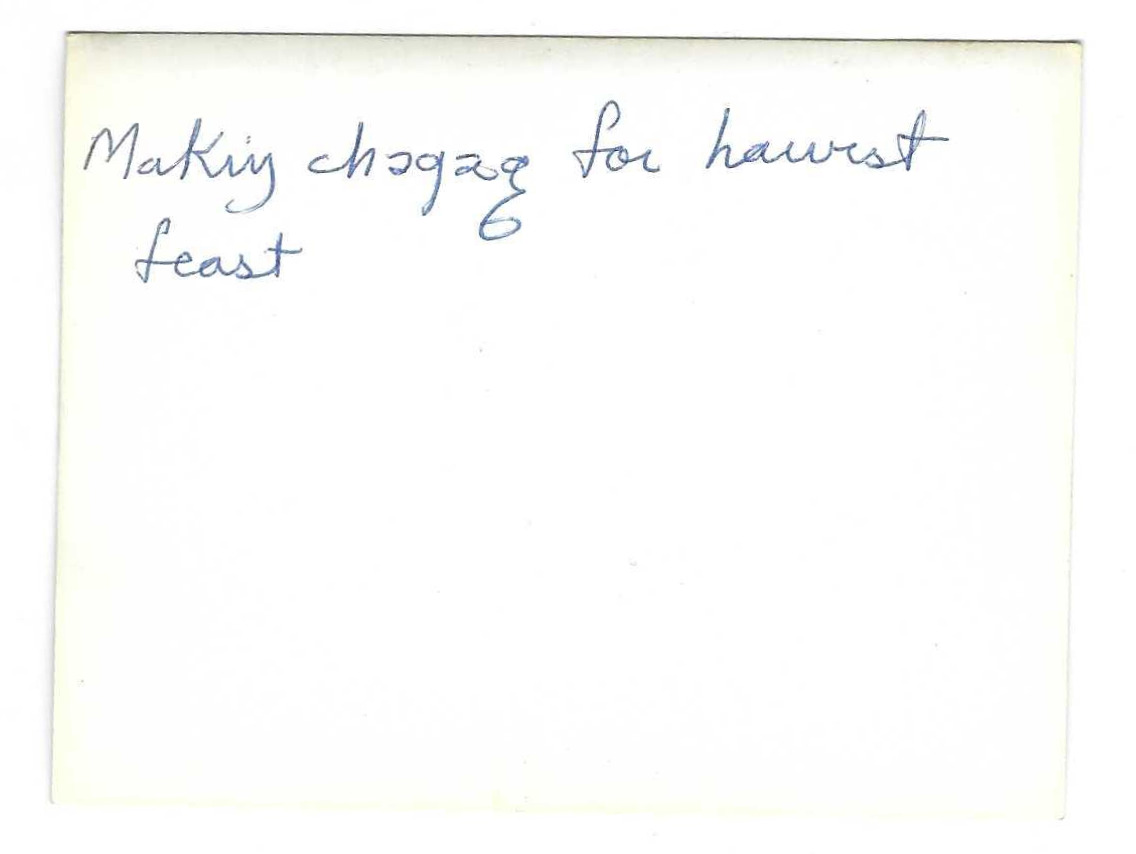 Making for harvest
feast